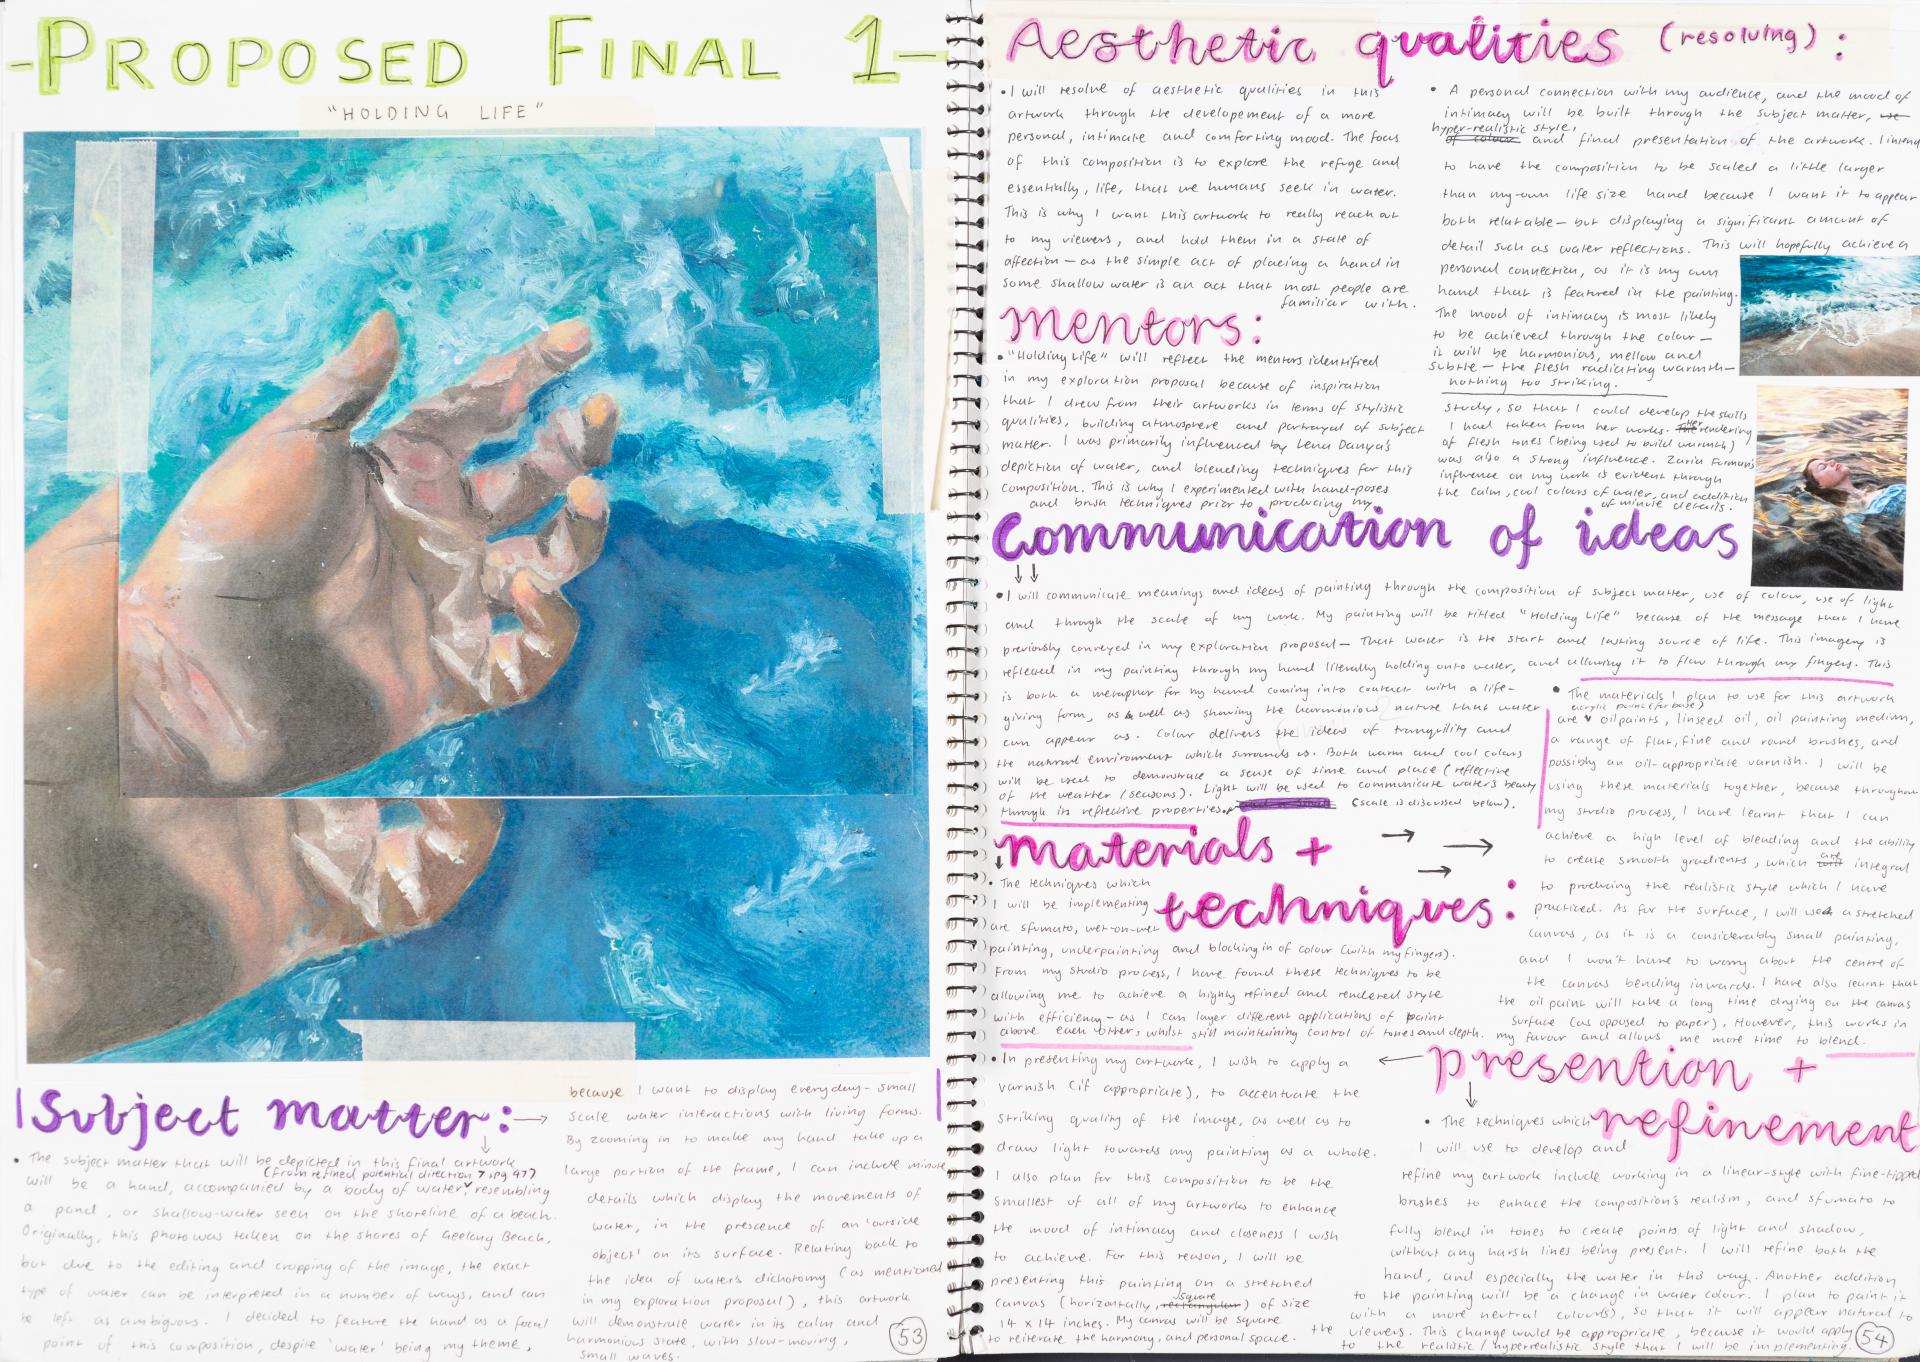 -PROPOSED FINAL 1-
"HOLDING LIFE"
Subject matter: →
• The subject matter that will be depicted in this final artwork
(from refined potential direction 7, pg 47)
will be a hand, accompanied by a body of water, resembling
a pond, or shallow-water seen on the shoreline of a beach.
Originally, this photo was taken on the shores of Geelong Beach,
but due to the editing and cropping of the image, the exact
type of water can be interpreted in a number of ways, and can
be left as ambiguous. I decided to feature the hand as a focal
point of this composition, despite 'water' being my theme,
because I want to display everyday- small
scale water interactions with living forms.
By zooming in to make my hand take up a
large portion of the frame, I can include minute
details which display the movements of
water, in the presence of an 'outside
object' on its surface. Relating back to
the idea of water's dichotomy (as mentioned
in my exploration proposal), this artwork
will demonstrate water in its calm and
harmonious state, with slow-moving,
small waves.
53
Aesthetic qualities (resolving) :
• I will resolve of aesthetic qualities in this
artwork through the developement of a more
personal, intimate and comforting mood. The focus
of this composition is to explore the refuge and
essentially, life, that we humans seek in water.
This is why I want this artwork to really reach out
to my viewers, and hold them in a state of
affection — as the simple act of placing a hand in
some shallow water is an act that most people are
familiar with.
• A personal connection with my audience, and the mood of
intimacy will be built through the subject matter, use
hyper-realistic style,
of colour and final presentation of the artwork. I intend
to have the composition to be scaled a little larger
than my-own life size hand because I want it to appear
both relatable — but displaying a significant amount of
detail such as water reflections. This will hopefully achieve a
personal connection, as it is my own
hand that is featured in the painting.
The mood of intimacy is most likely
to be achieved through the colour —
it will be harmonios, mellow and
subtle — the flesh radiating warmth —
nothing too striking.
mentors:
• "Holding Life" will reflect the mentors identified
in my exploration proposal because of inspiration
that I drew from their artworks in terms of stylistic
qualities, building atmosphere and portrayal of subject
matter. I was primarily influenced by Lena Danya's
depiction of water, and blending techniques for this
composition. This is why I experimented with hand-poses
and brush techniques prior to producing my
study, so that I could develop the skills
I had taken from her works. Her rendering
of flesh tones (being used to build warmth)
was also a strong influence. Zaria Forman's
influence on my work is evident through
the calm, cool colours of water, and addition
of minute details.
Communication of ideas
• I will communicate meanings and ideas of painting through the composition of subject matter, use of colour, use of light
and through the scale of my work. My painting will be titled "Holding Life" because of the message that I have
previously conveyed in my exploration proposal — That water is the start and lasting source of life. This imagery is
reflected in my painting through my hand literally holding onto water, and allowing it to flow through my fingers. This
is both a metaphor for my hand coming into contact with a life-
giving form, as well as showing the harmonious nature that water
can appear as. Colour delivers the ideas of tranquility and
the natural environment which surrounds us. Both warm and cool colours
will be used to demonstrate a sense of time and place (reflective
of the weather/seasons). Light will be used to communicate water's beauty
through its reflective properties. (scale is discussed below).
materials +
techniques:
• The techniques which
I will be implementing
are sfumato, wet-on-wet
painting, underpainting and blocking in of colour (with my fingers).
From my studio process, I have found these techniques to be
allowing me to achieve a highly refined and rendered style
with efficiency — as I can layer different applications of paint
above each others, whilst still maintaining control of tones and depth.
• The materials I plan to use for this artwork
acrylic paint (for base)
are oil paints, linseed oil, oil painting medium,
a range of flat, fine and round brushes, and
possibly an oil-appropriate varnish. I will be
using these materials together, because throughout
my studio process, I have learnt that I can
achieve a high level of blending and the ability
to create smooth gradients, which are integral
to producing the realistic style which I have
practiced. As for the surface, I will use a stretched
canvas, as it is a considerably small painting,
and I won't have to worry about the centre of
the canvas bending inwards. I have also learnt that
the oil paint will take a long time drying on the canvas
surface (as opposed to paper). However, this works in
my favour and allows me more time to blend.
presention +
refinement
• In presenting my artwork, I wish to apply a
varnish (if appropriate), to accentuate the
striking quality of the image, as well as to
draw light towards my painting as a whole.
I also plan for this composition to be the
smallest of all of my artworks to enhance
the mood of intimacy and closeness I wish
to achieve. For this reason, I will be
presenting this painting on a stretched
square
canvas (horizontally, rectangular) of size
14 x 14 inches. My canvas will be square
to reiterate the harmony, and personal space.
• The techniques which
I will use to develop and
refine my artwork include working in a linear-style with fine-tipped
brushes to enhace the composition's realism, and sfumato to
fully blend in tones to create points of light and shadow,
without any harsh lines being present. I will refine both the
hand, and especially the water in this way. Another addition
to the painting will be a change in water colour. I plan to paint it
with a more neutral colour(s), so that it will appear natural to
the viewers. This change would be appropriate, because it would apply
to the realistic/hyperrealistic style that I will be implementing.
54